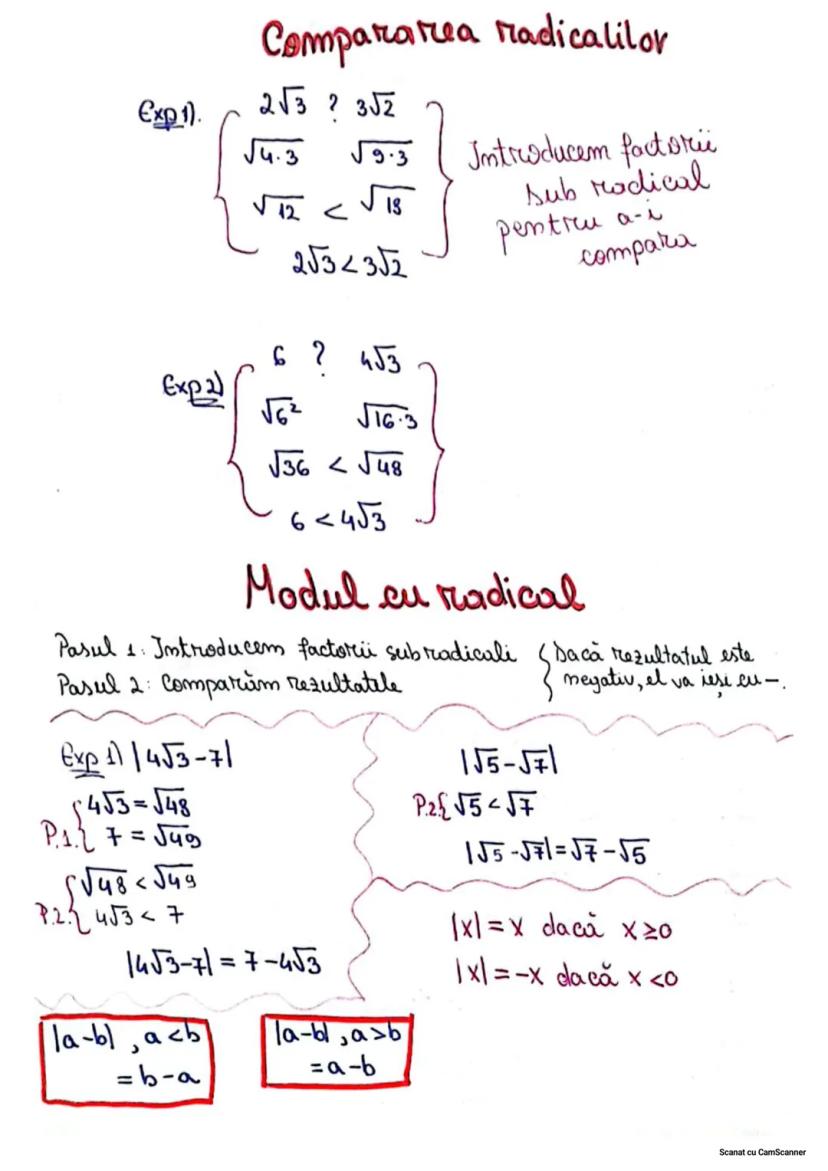 Compararea radicalilor
Exp 1).
2√3 ? 3√2
√4·3 √9·3
√12 < √18
2√3 < 3√2
Introducem factorii
sub radical
pentru a-i
compara
Exp 2)
6 ? 4√3
√6² √16·3
√36 < √48
6 < 4√3
Modul cu radical
Pasul 1: Introducem factorii sub radicali
Pasul 2: Comparăm rezultatele
Dacă rezultatul este
negativ, el va ieși cu -.
Exp 1) |4√3-7|
P.1. 4√3 = √48
7 = √49
P.2. √48 < √49
4√3 < 7
|4√3-7| = 7-4√3
|√5-√7|
P.2. √5 < √7
|√5-√7| = √7-√5
|x| = x dacă x ≥ 0
|x| = -x dacă x < 0
|a-b| , a < b
= b-a
|a-b| , a > b
= a-b
Scanat cu CamScanner